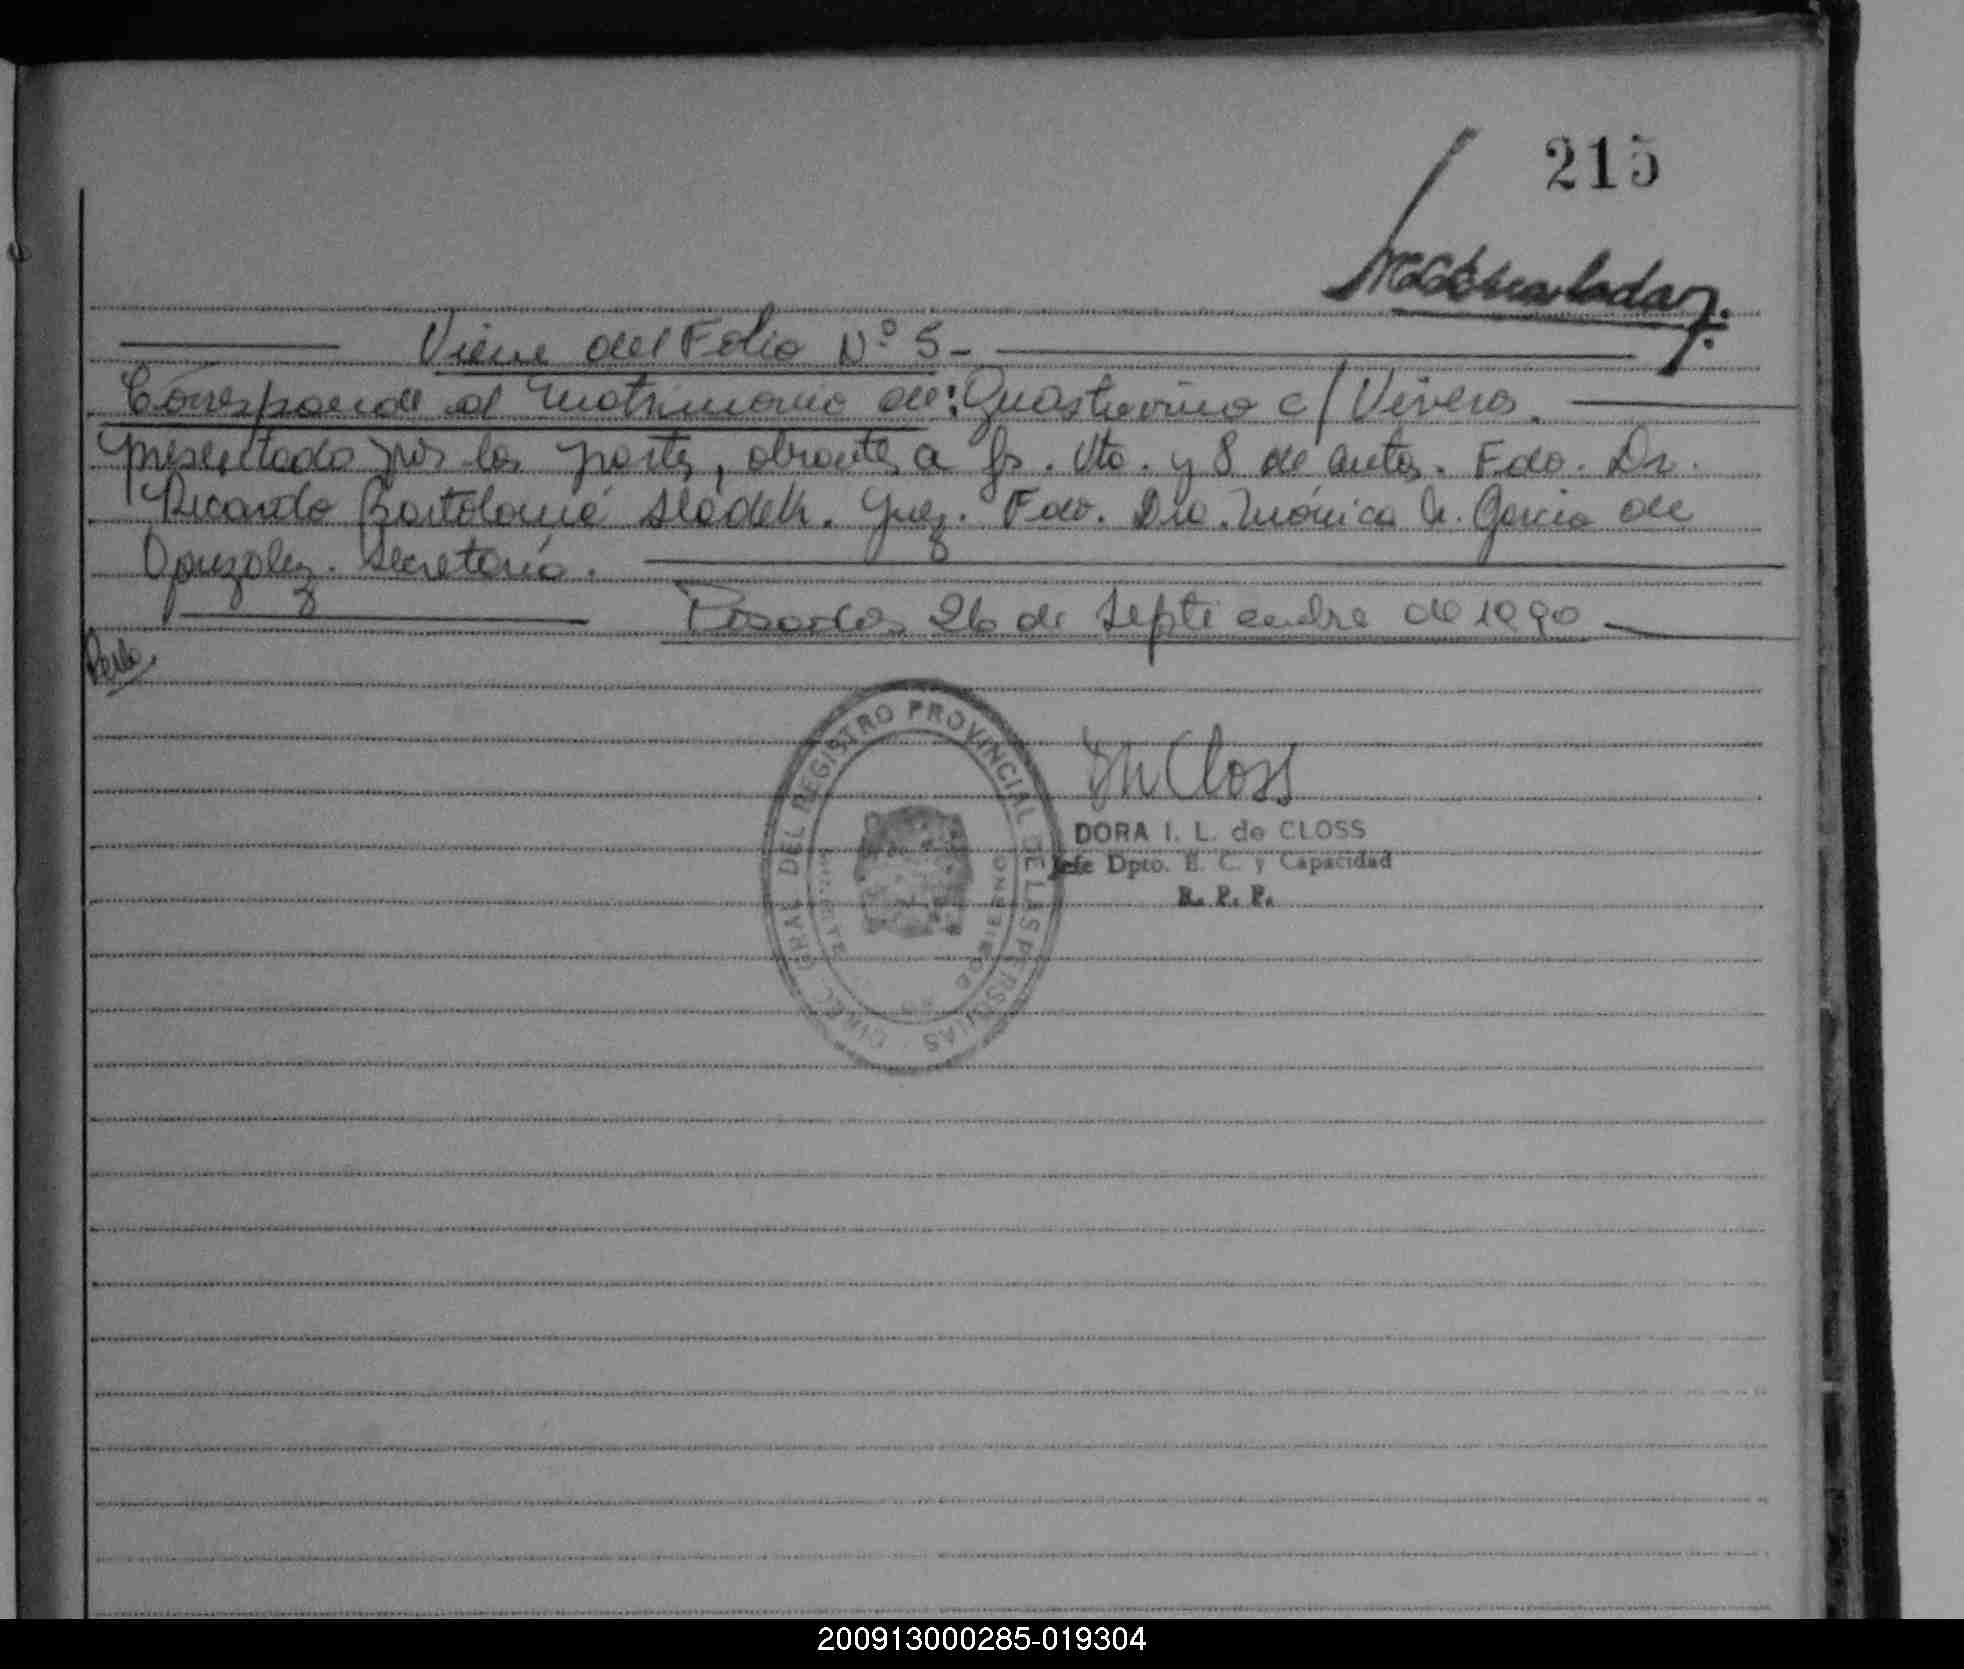 215
Viene del Folio Nº 5-
Corresponde al Matrimonio de: Guastavino c/ Vivero.
presentado por las partes, obrantes a fs. Vto. y 8 de autos. Fdo. Dr.
Ricardo Bartolomé Sladek. Juez. Fdo. Dra. Mónica G. García de
González. Secretaria.
Posadas 26 de Septiembre de 1990
DIREC. GRAL DEL REGISTRO PROVINCIAL DE LAS PERSONAS
Closs
DORA I. L. de CLOSS
Jefe Dpto. E. C. y Capacidad
R. P. P.
200913000285-019304